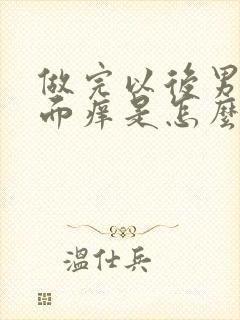 做完以後男
而痒是怎麼
溫仕兵